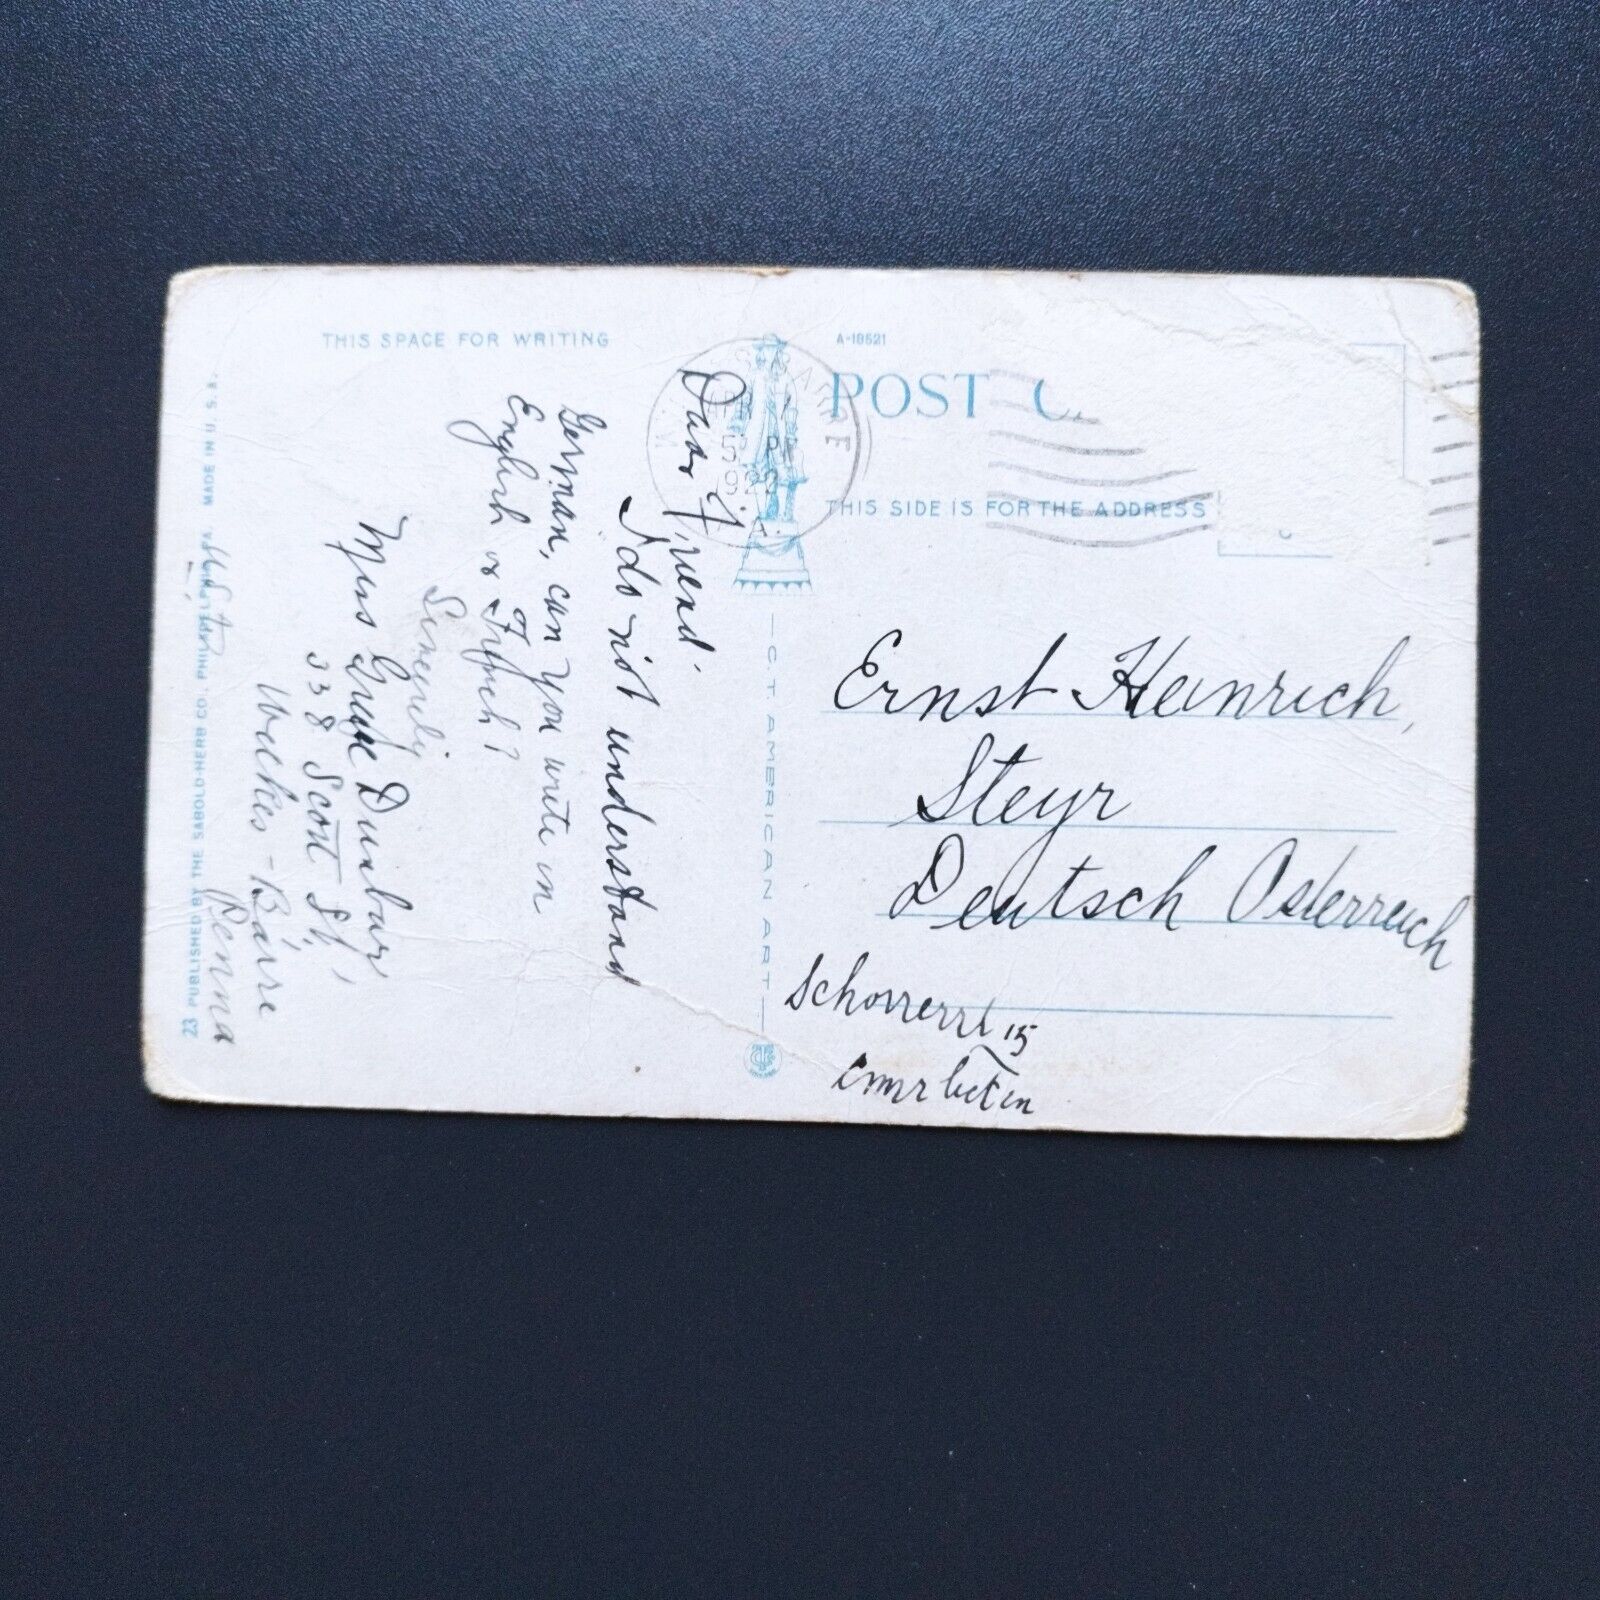 THIS SPACE FOR WRITING
Dear Friend
I do not understand
German, can you write in
English or French?
Sincerely
Miss Grace Dunbar
338 Scott St,
Wilkes-Barre
Penna
23 PUBLISHED BY THE SABOLD-HERB CO., PHILADELPHIA, PA. MADE IN U.S.A.
C.T. AMERICAN ART
A-18521
POST C
THIS SIDE IS FOR THE ADDRESS
Ernst Heinrich,
Steyr
Deutsch Osterreich
15